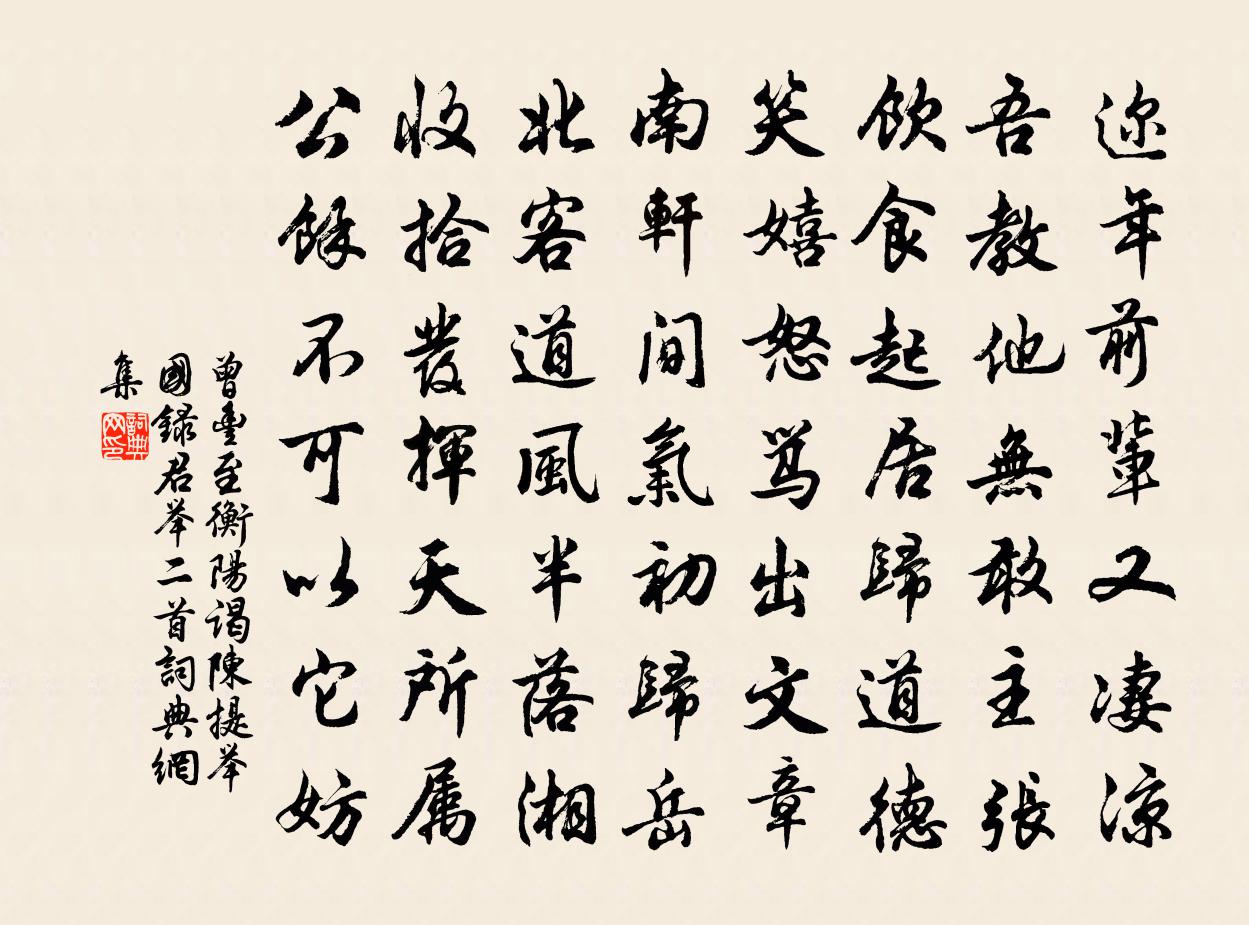 迩年前輩又凄涼
吾教他無敢主張
飲食起居歸道德
笑嬉怒骂出文章
南軒間氣初歸岳
北客道風半落湘
收拾發揮天所属
公餘不可以它妨
曾豊至衡陽谒陳提举
國録君举二首詞典網
集
詞典
网印